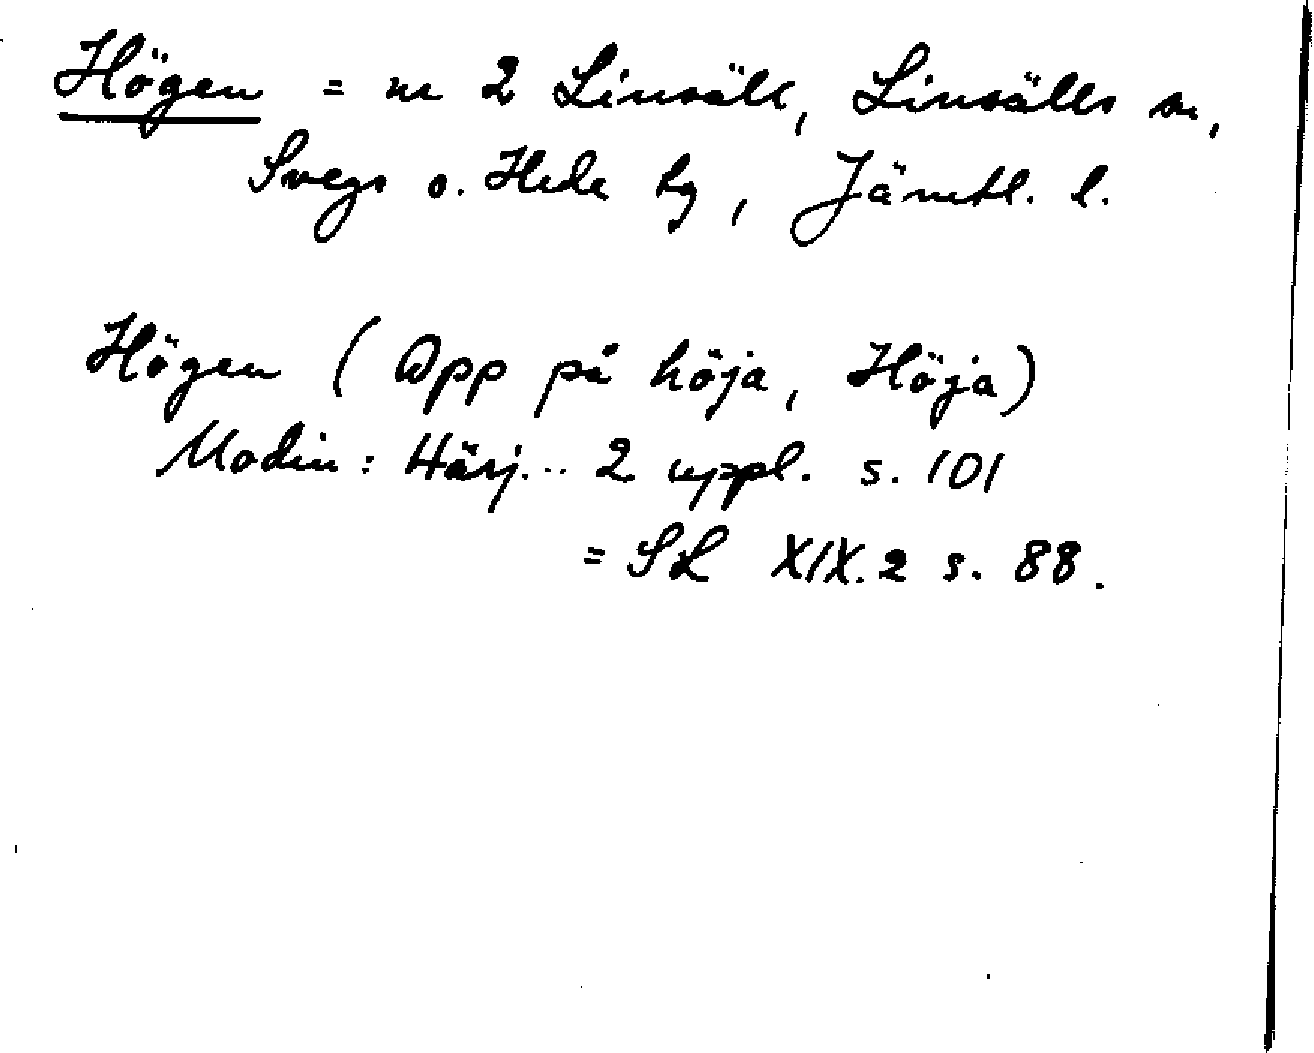 Högen = nr 2 Linsäll, Linsälls sn,
Svegs o. Hede hg, Jämtl. l.
Högen (Opp på höja, Höja)
Modin: Härj... 2 uppl. s. 101
= SL XIX.2 s. 88.